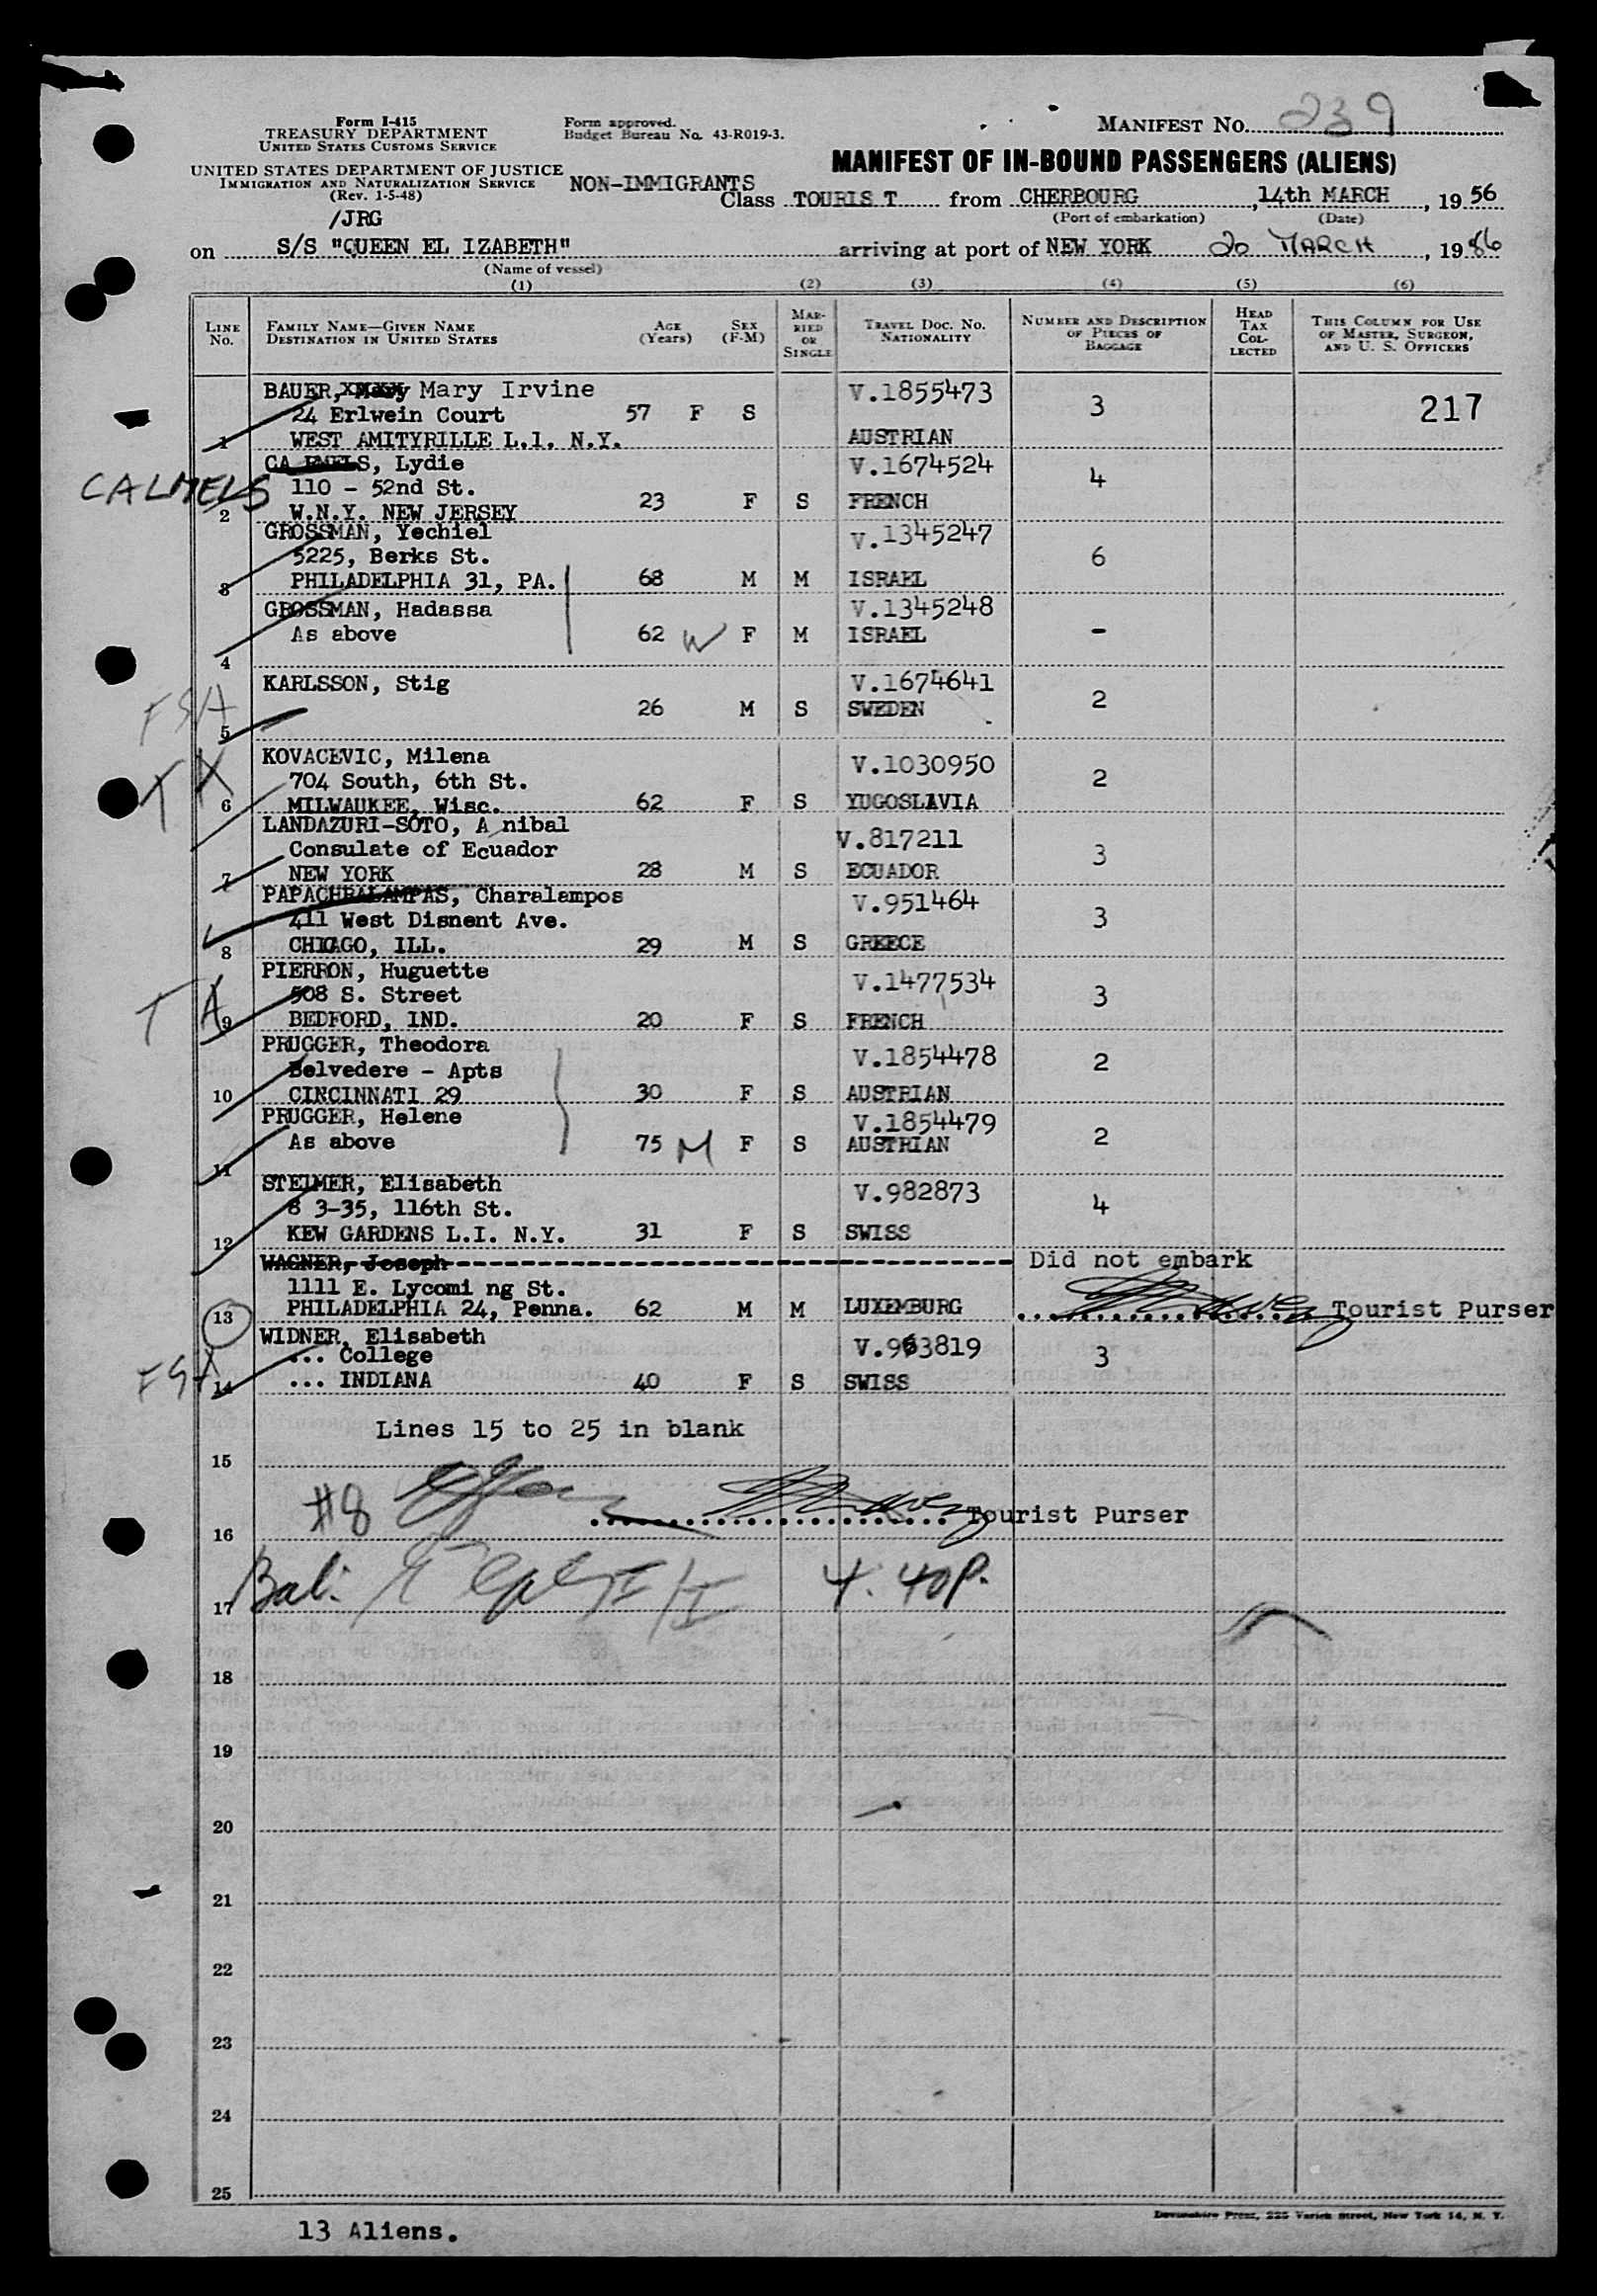 Form I-415
TREASURY DEPARTMENT
UNITED STATES CUSTOMS SERVICE
UNITED STATES DEPARTMENT OF JUSTICE
IMMIGRATION AND NATURALIZATION SERVICE
(Rev. 1-5-48)
/JRG
Form approved.
Budget Bureau No. 43-R019-3.
MANIFEST NO. 239
MANIFEST OF IN-BOUND PASSENGERS (ALIENS)
NON-IMMIGRANTS
Class TOURIS T from CHERBOURG, 14th MARCH, 19 56
(Port of embarkation) (Date)
on S/S "QUEEN EL IZABETH" arriving at port of NEW YORK 20 MARCH, 19 56
(Name of vessel)
(1) (2) (3) (4) (5) (6)
LINE No. FAMILY NAME—GIVEN NAME DESTINATION IN UNITED STATES AGE (Years) SEX (F-M) MARRIED OR SINGLE TRAVEL DOC. NO. NATIONALITY NUMBER AND DESCRIPTION OF PIECES OF BAGGAGE HEAD TAX COLLECTED THIS COLUMN FOR USE OF MASTER, SURGEON, AND U. S. OFFICERS
BAUER, Mary Irvine V.1855473
24 Erlwein Court 57 F S 3 217
1 WEST AMITYRILLE L.1. N.Y. AUSTRIAN
CA S, Lydie V.1674524
CALMELS 110 - 52nd St. 4
2 W.N.Y. NEW JERSEY 23 F S FRENCH
GROSSMAN, Yechiel V.1345247
5225, Berks St. 6
3 PHILADELPHIA 31, PA. 68 M M ISRAEL
GROSSMAN, Hadassa V.1345248
As above 62 W F M ISRAEL -
4
KARLSSON, Stig V.1674641
FSA 26 M S SWEDEN 2
5
KOVACEVIC, Milena V.1030950
704 South, 6th St. 2
6 MILWAUKEE, Wisc. 62 F S YUGOSLAVIA
LANDAZURI-SOTO, A nibal V.817211
Consulate of Ecuador 3
7 NEW YORK 28 M S ECUADOR
PAPACHRALAMPAS, Charalampos V.951464
411 West Disnent Ave. 3
8 CHICAGO, ILL. 29 M S GREECE
PIERRON, Huguette V.1477534
508 S. Street 3
9 BEDFORD, IND. 20 F S FRENCH
PRUGGER, Theodora V.1854478
Belvedere - Apts 2
10 CINCINNATI 29 30 F S AUSTRIAN
PRUGGER, Helene V.1854479
As above 75 M F S AUSTRIAN 2
11
STEIMER, Elisabeth V.982873
8 3-35, 116th St. 4
12 KEW GARDENS L.I. N.Y. 31 F S SWISS
WAGNER, Joseph Did not embark
1111 E. Lycomi ng St.
13 PHILADELPHIA 24, Penna. 62 M M LUXEMBURG Tourist Purser
WIDNER, Elisabeth V.963819
... College 3
14 ... INDIANA 40 F S SWISS
Lines 15 to 25 in blank
15
#8 Tourist Purser
16
Bal: 4.40P.
17
18
19
20
21
22
23
24
25
Devonshire Press, 225 Varick Street, New York 14, N. Y.
13 Aliens.